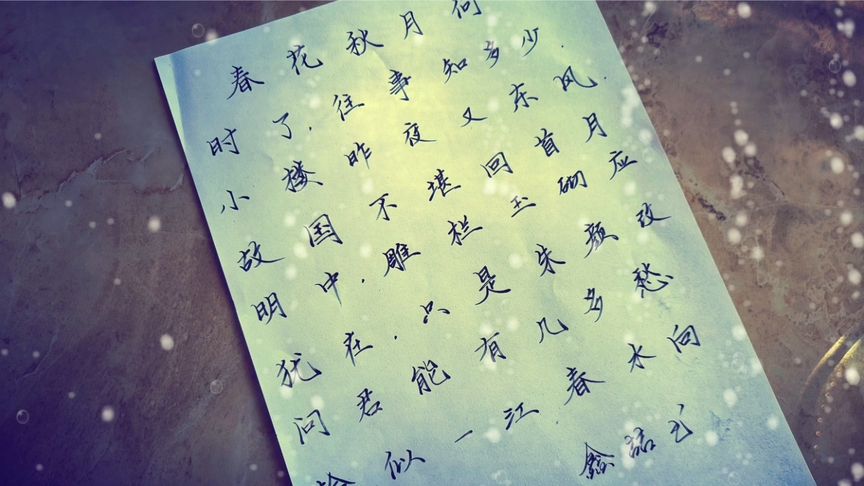 春花秋月何
时了，往事知多少．
小楼昨夜又东风．
故国不堪回首月
明中．雕栏玉砌应
犹在．只是朱颜改
问君能有几多愁
恰似一江春水向